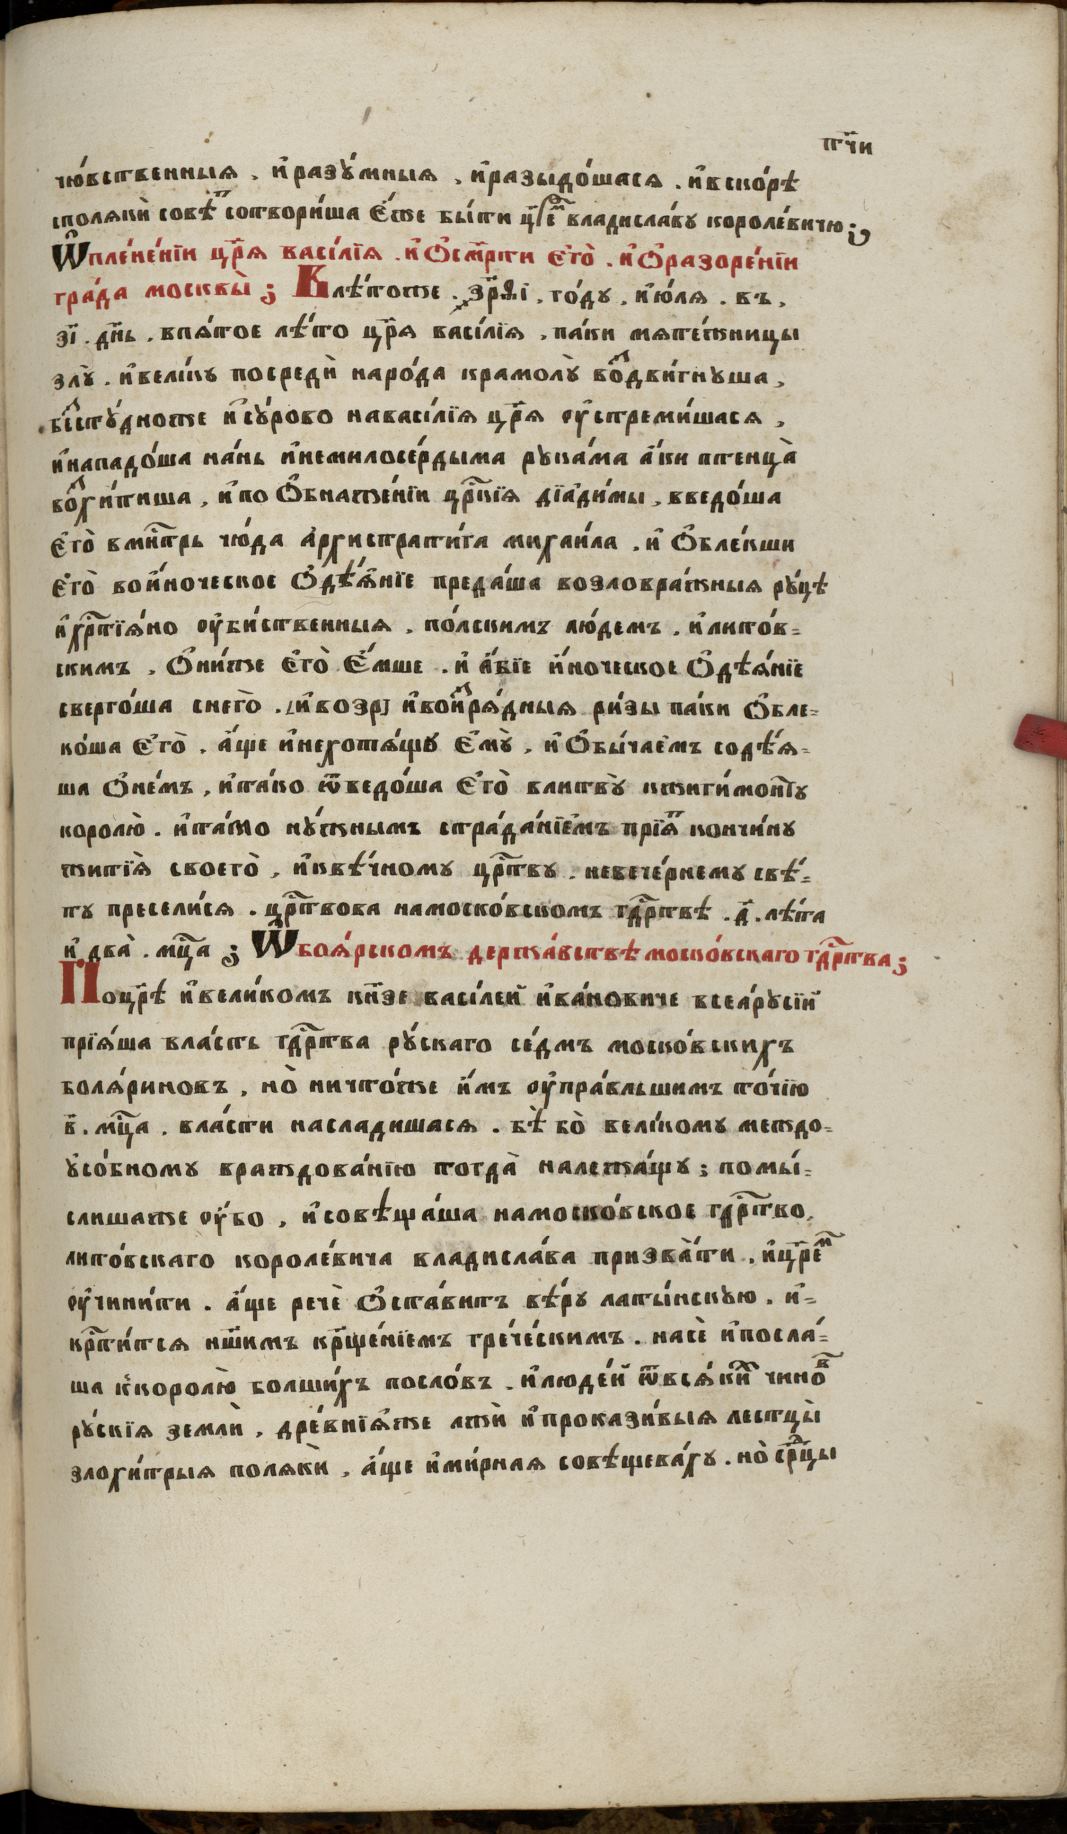 пч҃и
чю́вственныя , и҆разꙋ́мныя , и҆разыдо́шася . и҆вско́рѣ
споляки̑ совѣⷮ сотвори́ша є҆́же бы́ти цр҃еⷨ владисла́вꙋ короле́вичю ;
Ѽпленє́нїи цр҃я васі́лїѧ . и҆ѻ҆см҃рти є҆гѡ̀ . и҆ѻ҆разоре́нїи
гра́да москвы̀ ; Влѣ́тоже . ҂зр҃ѿі . го́дꙋ . и҆ю́ля . въ ,
з҃і . дн҃ь . впѧ́тое лѣ́то цр҃я васі́лїя , па́ки мяте́жницы
злꙋ̀ . и҆вели́кꙋ посредѝ наро́да крамолꙋ̀ воⷥдви́гнꙋша ,
беⷥстꙋ́дноже и҆сꙋ́рово навасі́лїя цр҃я ᲂу҆стреми́шася ,
и҆нападо́ша на́нь и҆немилосе́рдыма рꙋка́ма а҆́ки птенца̀
воⷥхи́тиша , и҆по ѻ҆бнаже́нїи црⷭ҇кїя дїади́мы , введо́ша
є҆го̀ вмн҃трь чю́да а҆рхистрати́га михаи́ла . и҆ ѻ҆бле́кши
є҆го̀ вои҆́ноческое ѻ҆дѣѧ́нїе преда́ша возловра́жныя рꙋ́цѣ
и҆хрⷭ҇тїя́но ᲂу҆би́ственныя . по́лскимъ лю́демъ . и҆лито́в-
скимъ , ѻ҆ни́же є҆го̀ є҆́мше . и҆ а҆́бїе и҆́ноческое ѻ҆дѣя́нїе
сверго́ша снего̀ . [и҆возр] и҆вои҆ⷥря́дныя ри́зы па́ки ѻ҆бле-
ко́ша є҆го̀ . а҆́ще и҆нехотя́щꙋ є҆мꙋ̀ , и҆ѻ҆бы́чаемъ содѣ́я-
ша ѻ҆не́мъ , и҆та́ко ѿведо́ша є҆го̀ влитвꙋ̀ кжигимо́нтꙋ
королю̀ . и҆та́мо нꙋ́жнымъ страда́нїемъ прїяⷮ кончи́нꙋ
житїѧ̀ своего̀ , и҆квѣ́чномꙋ црⷭ҇твꙋ . невече́рнемꙋ свѣ́-
тꙋ пресели́ся . црⷭ҇твова намоско́вскомъ гдрⷭ҇твѣ . д҃ . лѣ́та
и҆ два̀ . мцⷭ҇а ; Ѽбоя́рскомъ держа́вствѣ моско́вскаго гдрⷭ҇тва ;
Поцр҃ѣ и҆вели́комъ кн҃зе васі́лей и҆ва́новиче всеа́рꙋсїй
прїя́ша вла́сть гдрⷭ҇тва рꙋ́скаго се́дмъ моско́вскихъ
боля́риновъ , но̀ ничто́же и҆́мъ ᲂу҆пра́вльшимъ то́чїю
в҃ . мцⷭ҇а . вла́сти насладишася . бѣ̀ бо̀ вели́комꙋ междо-
ꙋсо́бномꙋ враждова́нїю тогда̀ належа́щꙋ ; помы́-
слишаже ᲂу҆́бо , и҆совѣща́ша намоско́вское гдрⷭ҇тво ,
лито́вскаго короле́вича владисла́ва призва́ти . и҆цр҃еⷨ
ᲂу҆чини́ти . а҆́ще речѐ ѻ҆ста́витъ вѣ́рꙋ латы́нскꙋю . и҆-
крⷭ҇ти́тся нш҃имъ крⷭ҇ще́нїемъ гре́ческимъ . насѐ и҆посла́-
ша к҆королю̀ болши́хъ посло́въ . и҆люде́й ѿвся́киⷯ чиноⷡ
рꙋ́скїя землѝ , дре́внїяже лжѝ и҆проказі́выя лестцы̀
злохи́трыя поля́кѝ , а҆́ще и҆ми́рная совѣщева́хꙋ . но̀ срⷣцы